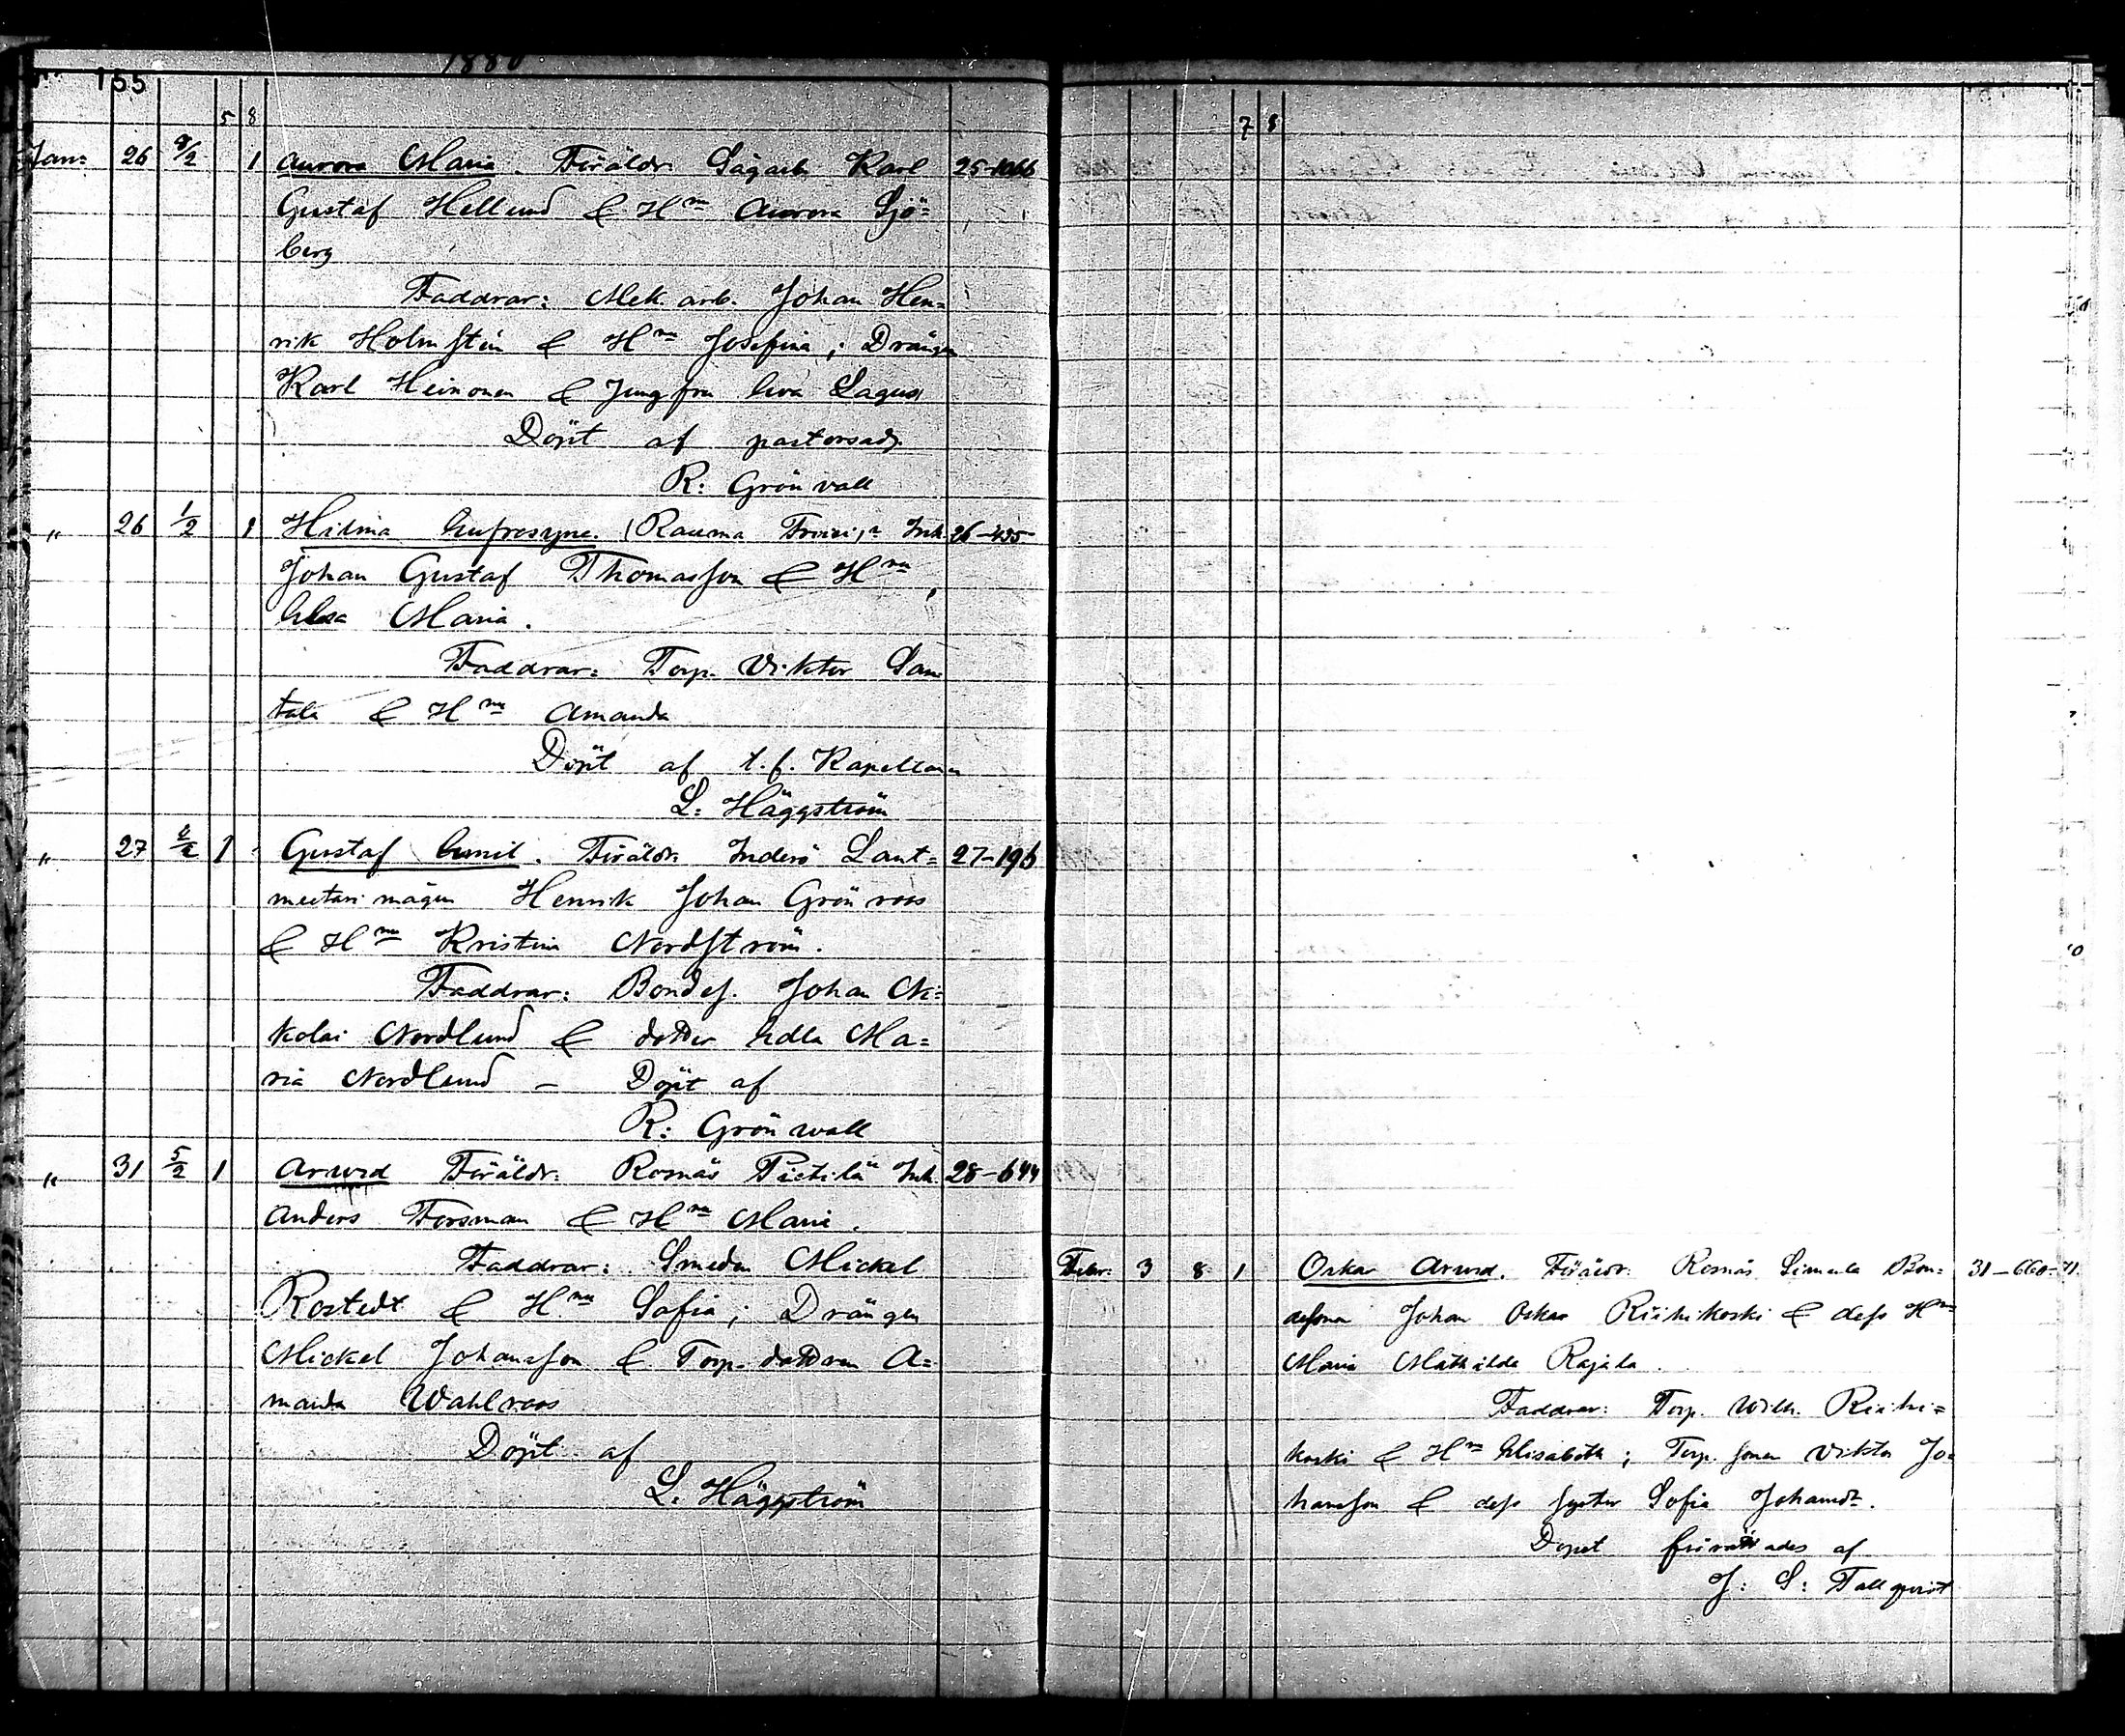 1880
155
5 8
Jan: 26 8/2 1 Aurora Maria. Föräldr. Sågarb. Karl 25-1066
Gustaf Hellund & Hru Aurora Sjö=
berg
Faddrar: Mek. arb. Johan Hen=
rik Holmstén & Hru Josefina; Drängen
Karl Heinonen & Jungfru Eva Lagus
Döpt af pastorsadj.
R: Grönvall
" 26 1/2 1 Hilma Eufrosyne. (Rauma Inh. 26-435
Johan Gustaf Thomasson & Hru
Elsa Maria.
Faddrar: Torp. Viktor San
tala & Hru Amanda
Döpt af t.f. Kapellanen
L: Häggström
" 27 2/2 1 Gustaf Emil. Föräldr. Inderö Lant= 27-196
meetari mågen Henrik Johan Grönroos
& Hru Kristina Nordström.
Faddrar: Bondes. Johan Ni=
kolai Nordlund & dotter Edla Ma=
ria Nordlund – Döpt af
R: Grönwall
" 31 5/2 1 Arwid Föräldr: Rosnäs Pietilä Inh. 28-644
Anders Forsman & Hru Maria.
Faddrar: Smeden Mickel
Rostedt & Hru Sofia; Drängen
Mickel Johansson & Torp. dottren A=
manda Wahlroos
Döpt af
L: Häggström
7 8
Febr. 3 8 1 Oskar Arwid. Föräldr: Rosnäs Simula Bon= 31-660-71.
desonen Johan Oskar Riihikoski & dess Hru
Maria Mathilda Rajala.
Faddrar: Torp. Wilh. Riihi=
koski & Hru Elisabeth; Torp. sonen Viktor Jo=
hansson & dess syster Sofia Johansdr.
Dopet förrättades af
J: S: Tallqvist